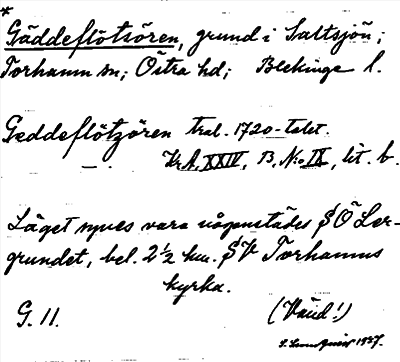 *
Gäddeflötsören, grund i Saltsjön;
Torhamn sn; Östra hd; Blekinge l.
Geddeflötzören tral. 1720-talet.
Kr.A. XXIV, B. No IX, lit. b.
Läget synes vara någonstädes S Ö Ler-
grundet, bel. 2½ km. S V Torhamns
kyrka.
G. 11.
(Vänd!)
1937.